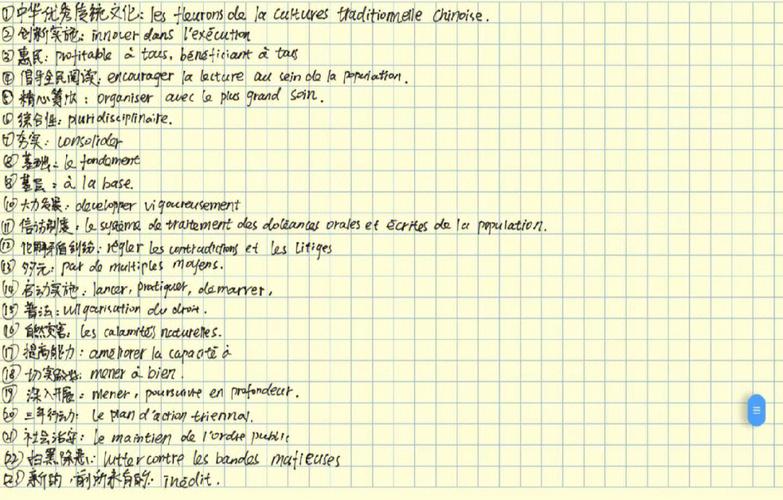 ① 中华优秀传统文化: les fleurons de la cultures traditionnelle chinoise.
② 创新实施: innover dans l'exécution
③ 惠民: profitable à tous, bénéficiant à tous
④ 倡导全民阅读: encourager la lecture au sein de la population.
⑤ 精心筹办: organiser avec le plus grand soin.
⑥ 综合性: pluridisciplinaire.
⑦ 夯实: consolider
⑧ 基础: le fondement
⑨ 基层: à la base.
⑩ 大力发展: développer vigoureusement
⑪ 信访制度: le système de traitement des doléances orales et écrites de la population.
⑫ 化解矛盾纠纷: régler les contradictions et les litiges
⑬ 多元: par de multiples moyens.
⑭ 启动实施: lancer, pratiquer, démarrer,
⑮ 普法: vulgarisation du droit.
⑯ 自然灾害: les calamités naturelles.
⑰ 提高能力: améliorer la capacité à
⑱ 切实做好: mener à bien.
⑲ 深入开展: mener, poursuivre en profondeur.
⑳ 三年行动: le plan d'action triennal.
㉑ 社会治安: le maintien de l'ordre public
㉒ 扫黑除恶: lutter contre les bandes mafieuses
㉓ 新的, 前所未有的: inédit.